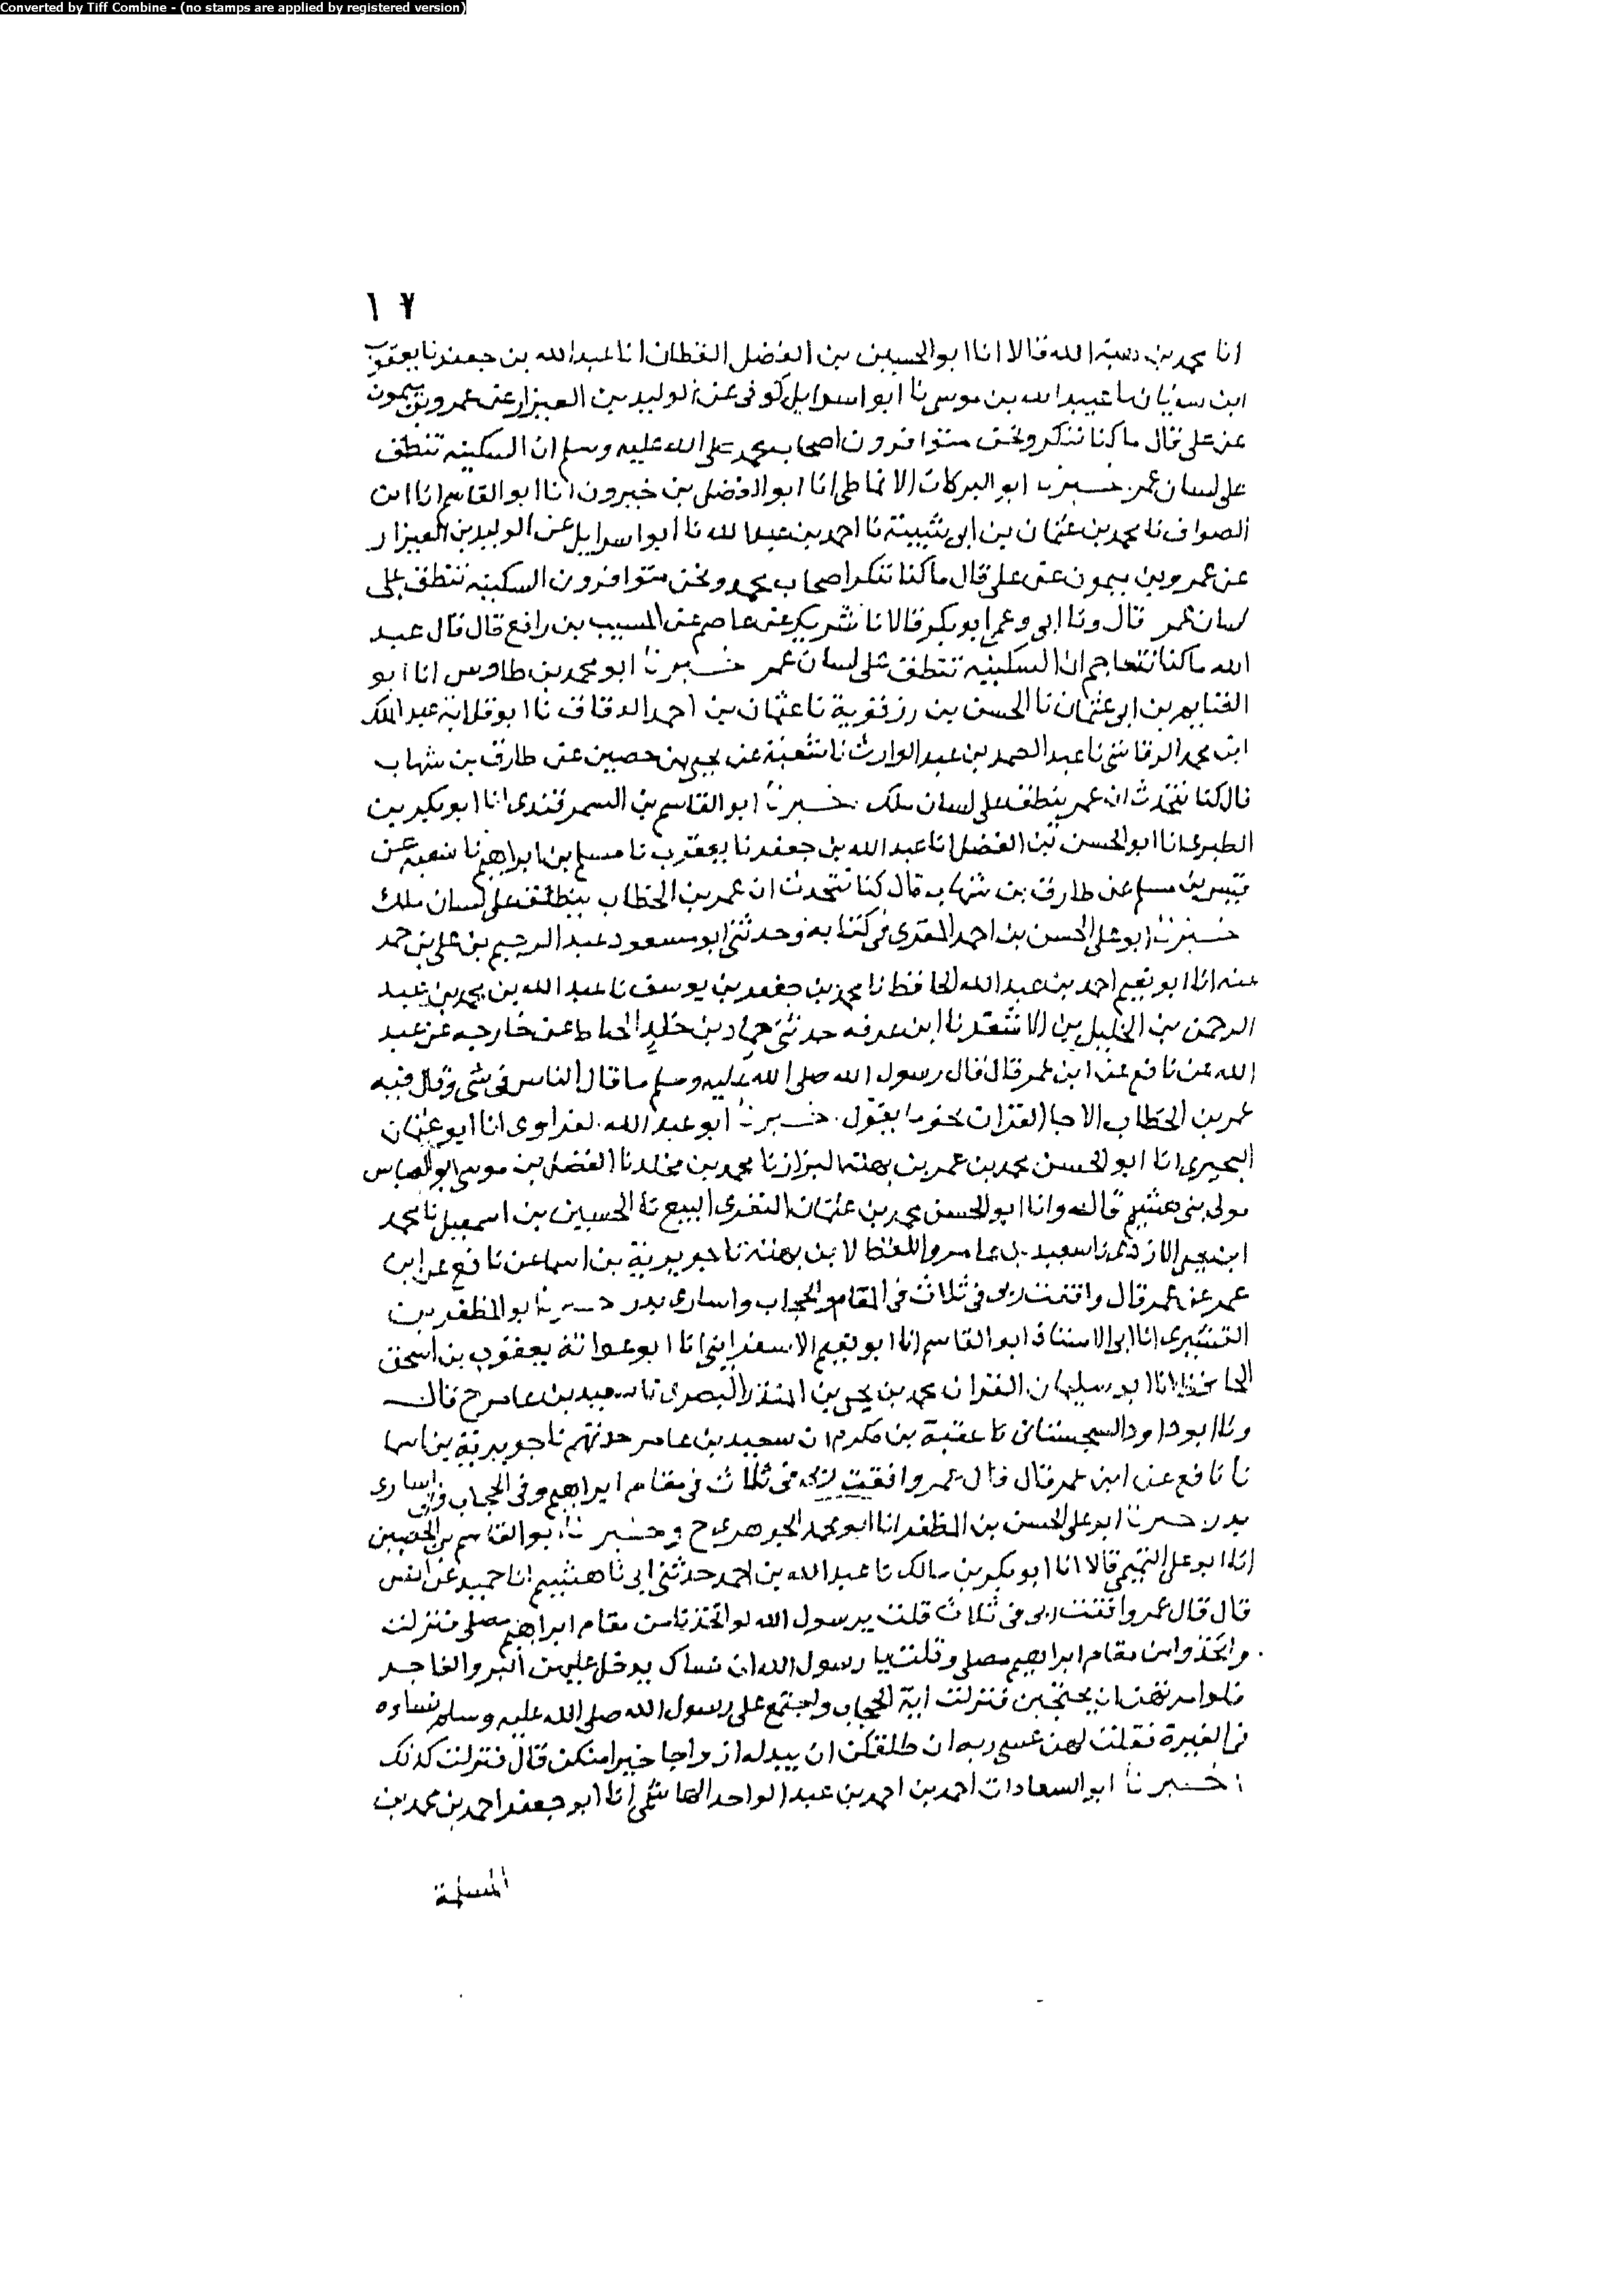 Converted by Tiff Combine - (no stamps are applied by registered version)
١٧
انا محمد بن هبة الله قالا انا ابو الحسين بن الفضل القطان انا عبد الله بن جعفر نا يعقوب
ابن سفيان نا عبيد الله بن موسى نا ابو اسرايل كوفى عن الوليد بن العيزار عن عمرو بن ميمون
عن على قال ما كنا ننكر ونحن متوافرون اصحاب محمد صلى الله عليه وسلم ان السكينه تنطق
على لسان عمر خبرنا ابو البركات الانماطى انا ابو الفضل بن خيرون انا ابو القاسم انا ابن
الصواف نا محمد بن عثمان بن ابى شيبة نا احمد بن عبد الله نا ابو اسرايل عن الوليد بن العيزار
عن عمرو بن ميمون عن على قال ما كنا ننكر اصحاب محمد ونحن متوافرون السكينه تنطق على
لسان عمر قال ونا ابى وعمى ابو بكر قالا نا شريك عن عاصم عن المسيب بن رافع قال قال عبد
الله ما كنا نتعاجم ان السكينه تنطق على لسان عمر خبرنا ابو محمد بن طاوس انا ابو
الغنايم بن ابى عثمان نا الحسن بن رزقوية نا عثمان بن احمد الدقاق نا ابو قلابة عبد الملك
ابن محمد الرقاشى نا عبد الصمد بن عبد الوارث نا شعبة عن يحيى بن حصين عن طارق بن شهاب
قال كنا نتحدث ان عمر ينطق على لسان ملك خبرنا ابو القاسم بن السمرقندى انا ابو بكر بن
الطبرى انا ابو الحسن بن الفضل انا عبد الله بن جعفر نا يعقوب نا مسلم بن ابراهيم نا شعبه عن
قيس بن مسلم عن طارق بن شهاب قال كنا نتحدث ان عمر بن الخطاب ينطق على لسان ملك
خبرنا ابو على الحسن بن احمد المقرى فى كتابه وحدثنى ابو مسعود عبد الرحيم بن على بن حمد
عنه انا ابو نعيم احمد بن عبد الله الحافظ نا محمد بن جعفر بن يوسف نا عبد الله بن محمد بن عبد
الرحمن بن الخليل بن الاشقر نا ابن عرفه حدثنى حماد بن خالد الخياط عن خارجه عن عبد
الله عن نافع عن ابن عمر قال قال رسول الله صلى الله عليه وسلم ما قال الناس فى شى وقال فيه
عمر بن الخطاب الا جا القران نحو ما يقول خبرنا ابو عبد الله الفراوى انا ابو عثمان
البحيرى انا ابو الحسن محمد بن عمر بن بهته البزاز نا محمد بن مخلد نا الفضل بن موسى ابو العباس
مولى بنى هشيم قال وانا ابو الحسن محمد بن عثمان النفرى البيع نا الحسين بن اسمعيل نا محمد
ابن يحيى الازدى نا سعيد بن عامر واللفظ لابن بهته نا جويرية بن اسما عن نافع عن ابن
عمر عن عمر قال وافقت ربى فى ثلاث فى المقام والحجاب واسارى بدر خبرنا ابو المظفر بن
القشيرى انا ابى الاستاذ ابو القاسم انا ابو نعيم الاسفراينى انا ابو عوانة يعقوب بن اسحق
الحافظ انا ابو سليمان القزاز محمد بن يحيى بن المنذر البصرى نا سعيد بن عامر ح قال
ونا ابو داود السجستانى نا عقبة بن مكرم ان سعيد بن عامر حدثهم نا جويرية بن اسما
نا نافع عن ابن عمر قال قال عمر وافقت ربى فى ثلاث فى مقام ابراهيم وفى الحجاب وفى اسارى
بدر خبرنا ابو على الحسن بن المظفر انا ابو محمد الجوهرى ح وخبرنا ابو القاسم بن الحصين
انا ابو على التميمى قالا انا ابو بكر بن مالك نا عبد الله بن احمد حدثنى ابى نا هشيم انا حميد عن انس
قال قال عمر وافقت ربى فى ثلاث قلت يرسول الله لو اتخذنا من مقام ابراهيم مصلى فنزلت
واتخذوا من مقام ابراهيم مصلى وقلت يا رسول الله ان نساك يدخل عليهن البر والفاجر
فلو امرتهن ان يحتجبن فنزلت اية الحجاب واجتمع على رسول الله صلى الله عليه وسلم نساوه
فى الغيرة فقلت لهن عسى ربه ان طلقكن ان يبدله ازواجا خيرا منكن قال فنزلت كذلك
اخبرنا ابو السعادات احمد بن احمد بن عبد الواحد الهاشمى انا ابو جعفر احمد بن محمد بن
المسلمة